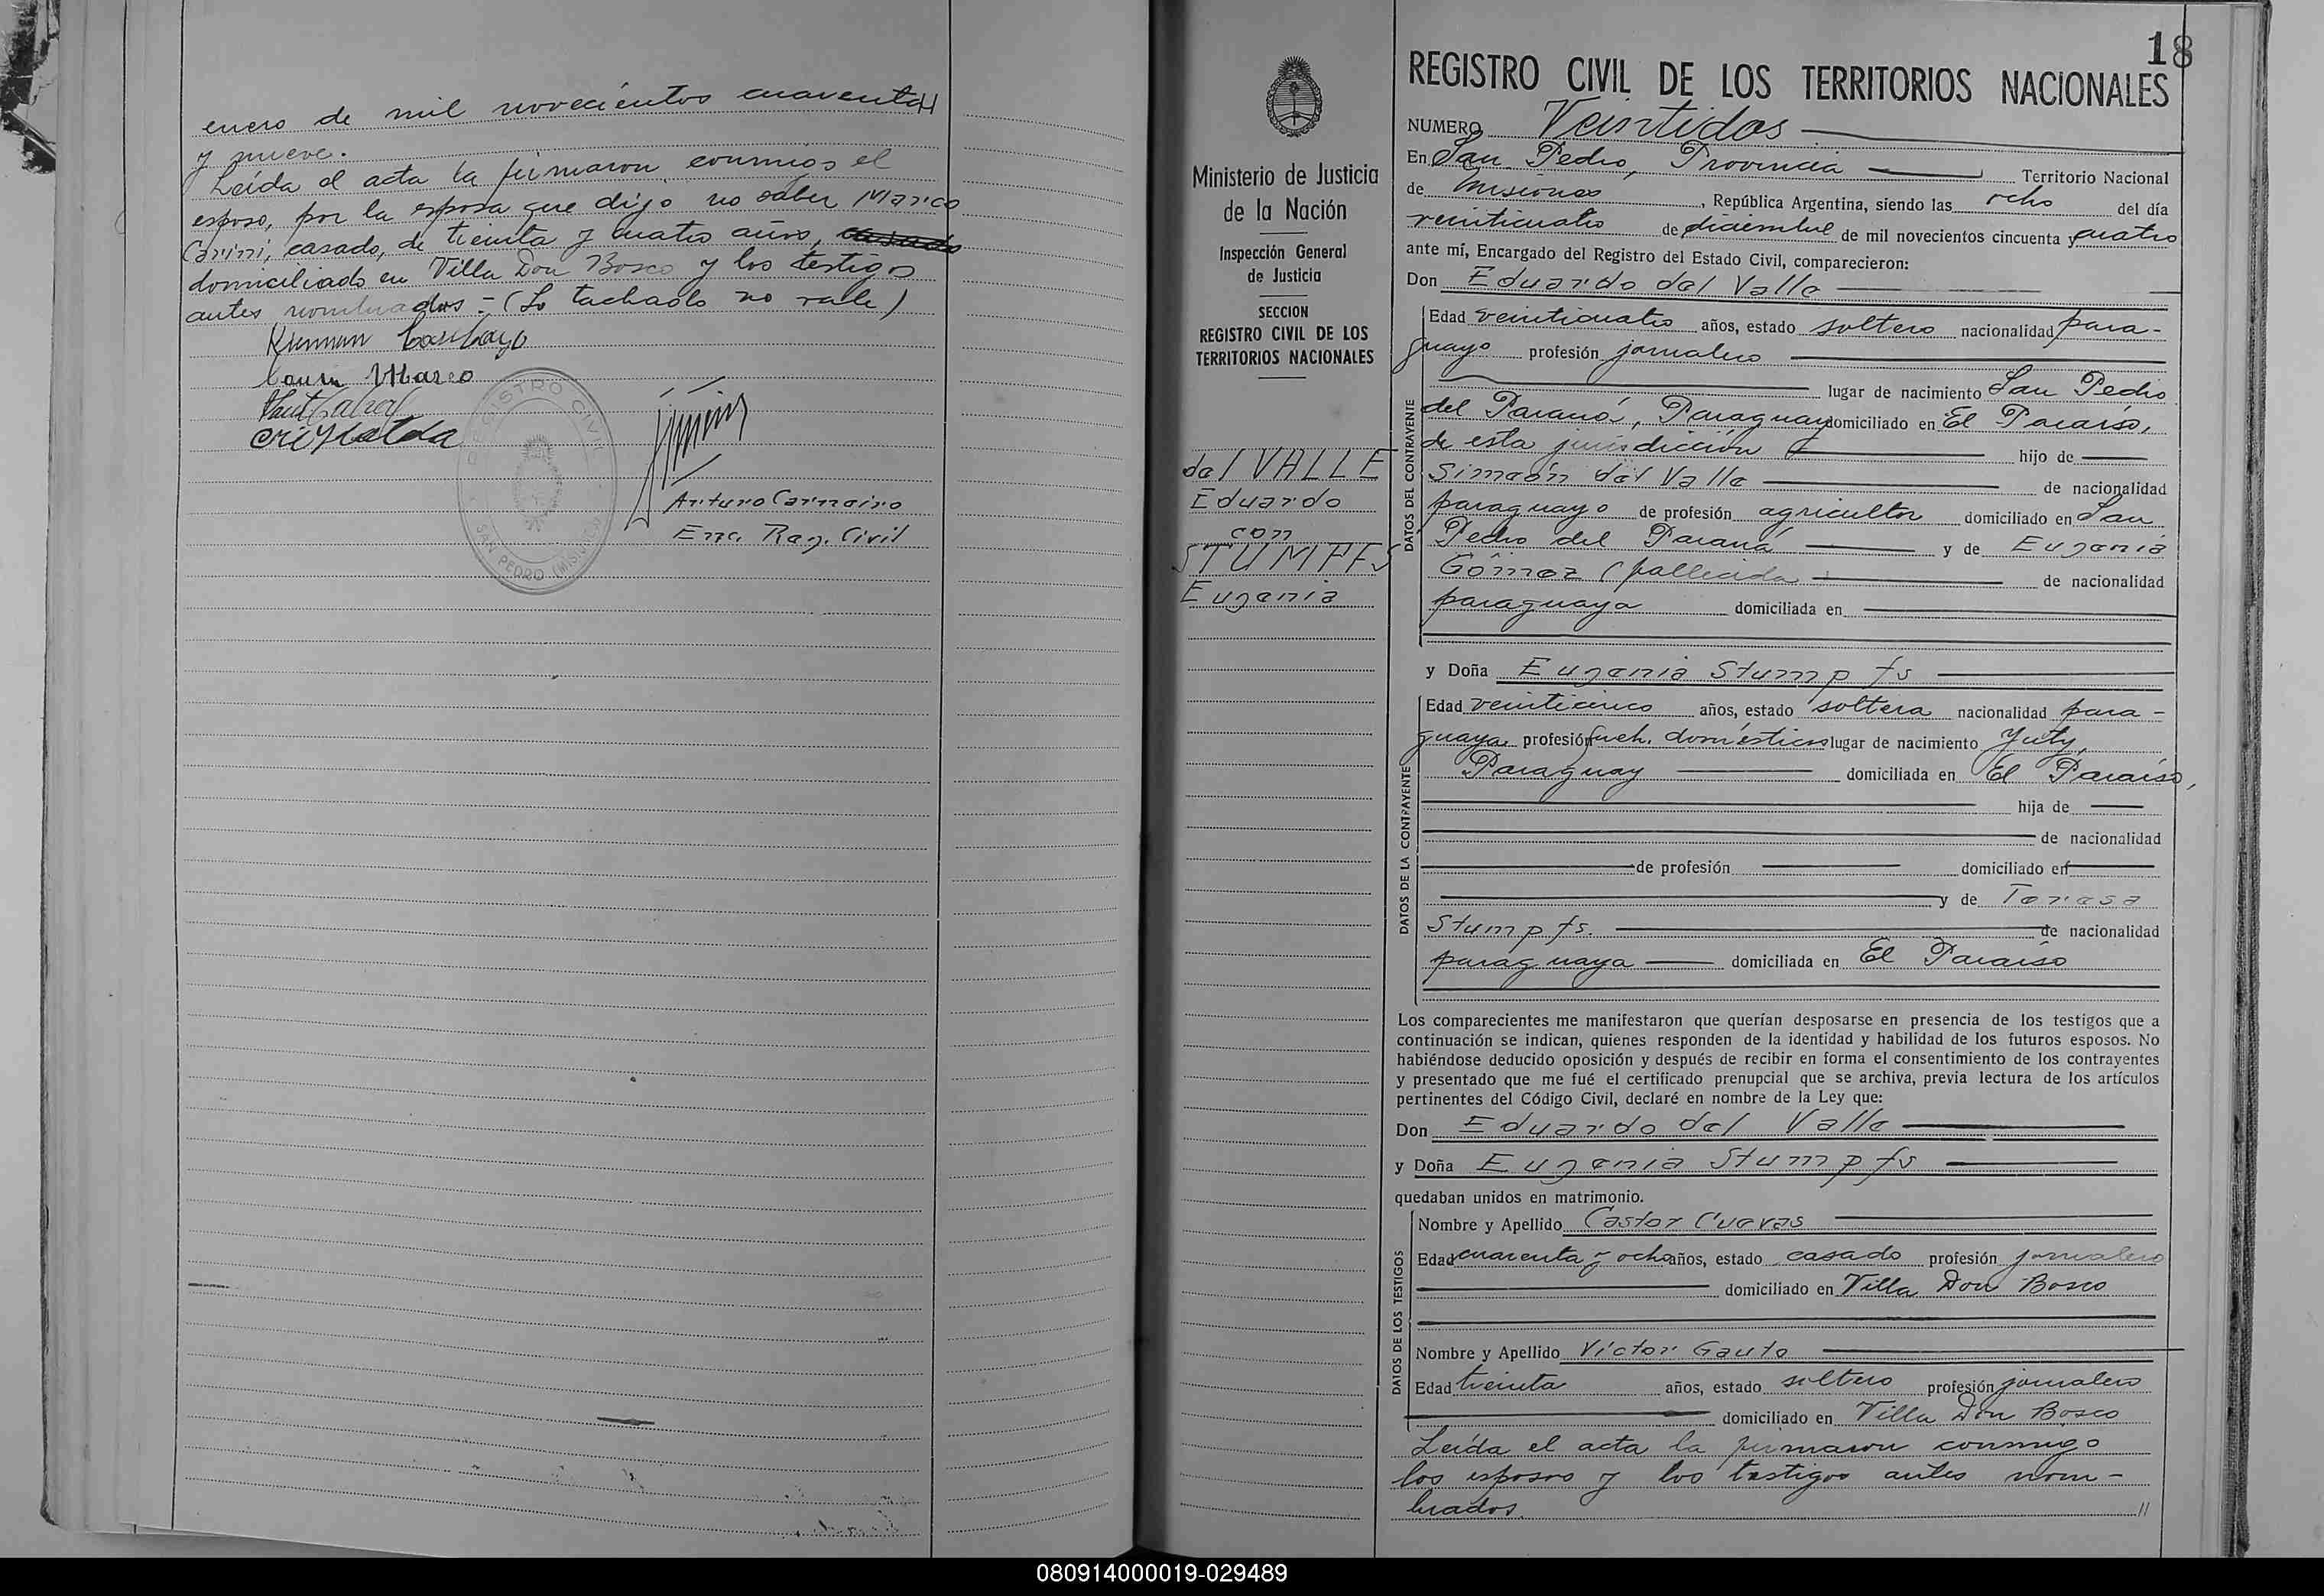 enero de mil novecientos cuarenta
y nueve.
Leída el acta la firmaron conmigo el
esposo, por la esposa que dijo no saber Marco
casado, de treinta y cuatro años, casado
domiciliado en Villa Don Bosco y los testigos
antes nombrados - (Lo tachado no vale)
Marco
REGISTRO CIVIL
SAN PEDRO (MISIONES)
Arturo Carneiro
Enc. Reg. Civil
18
Ministerio de Justicia
de la Nación
Inspección General
de Justicia
SECCION
REGISTRO CIVIL DE LOS
TERRITORIOS NACIONALES
del VALLE
Eduardo
con
STUMPFS
Eugenia
REGISTRO CIVIL DE LOS TERRITORIOS NACIONALES
NUMERO Veintidos
En San Pedro, Provincia Territorio Nacional
de Misiones, República Argentina, siendo las ocho del día
veinticuatro de diciembre de mil novecientos cincuenta y cuatro
ante mí, Encargado del Registro del Estado Civil, comparecieron:
Don Eduardo del Valle
DATOS DEL CONTRAYENTE
Edad veinticuatro años, estado soltero nacionalidad para-
guayo profesión jornalero
lugar de nacimiento San Pedro
del Paraná, Paraguay domiciliado en El Paraíso,
de esta jurisdicción hijo de
Simeón del Valle de nacionalidad
paraguayo de profesión agricultor domiciliado en San
Pedro del Paraná y de Eugenia
Gómez (fallecida) de nacionalidad
paraguaya domiciliada en
y Doña Eugenia Stumpfs
DATOS DE LA CONTRAYENTE
Edad veinticinco años, estado soltera nacionalidad para-
guaya profesión queh. domésticos lugar de nacimiento Yuty,
Paraguay domiciliada en El Paraíso,
hija de
de nacionalidad
de profesión domiciliado en
y de Teresa
Stumpfs. de nacionalidad
paraguaya domiciliada en El Paraíso
Los comparecientes me manifestaron que querían desposarse en presencia de los testigos que a
continuación se indican, quienes responden de la identidad y habilidad de los futuros esposos. No
habiéndose deducido oposición y después de recibir en forma el consentimiento de los contrayentes
y presentado que me fué el certificado prenupcial que se archiva, previa lectura de los artículos
pertinentes del Código Civil, declaré en nombre de la Ley que:
Don Eduardo del Valle
y Doña Eugenia Stumpfs
quedaban unidos en matrimonio.
DATOS DE LOS TESTIGOS
Nombre y Apellido Castor Cuevas
Edad cuarenta y ocho años, estado casado profesión jornalero
domiciliado en Villa Don Bosco
Nombre y Apellido Víctor Gauto
Edad treinta años, estado soltero profesión jornalero
domiciliado en Villa Don Bosco
Leída el acta la firmaron conmigo
los esposos y los testigos antes nom-
brados. //
080914000019-029489